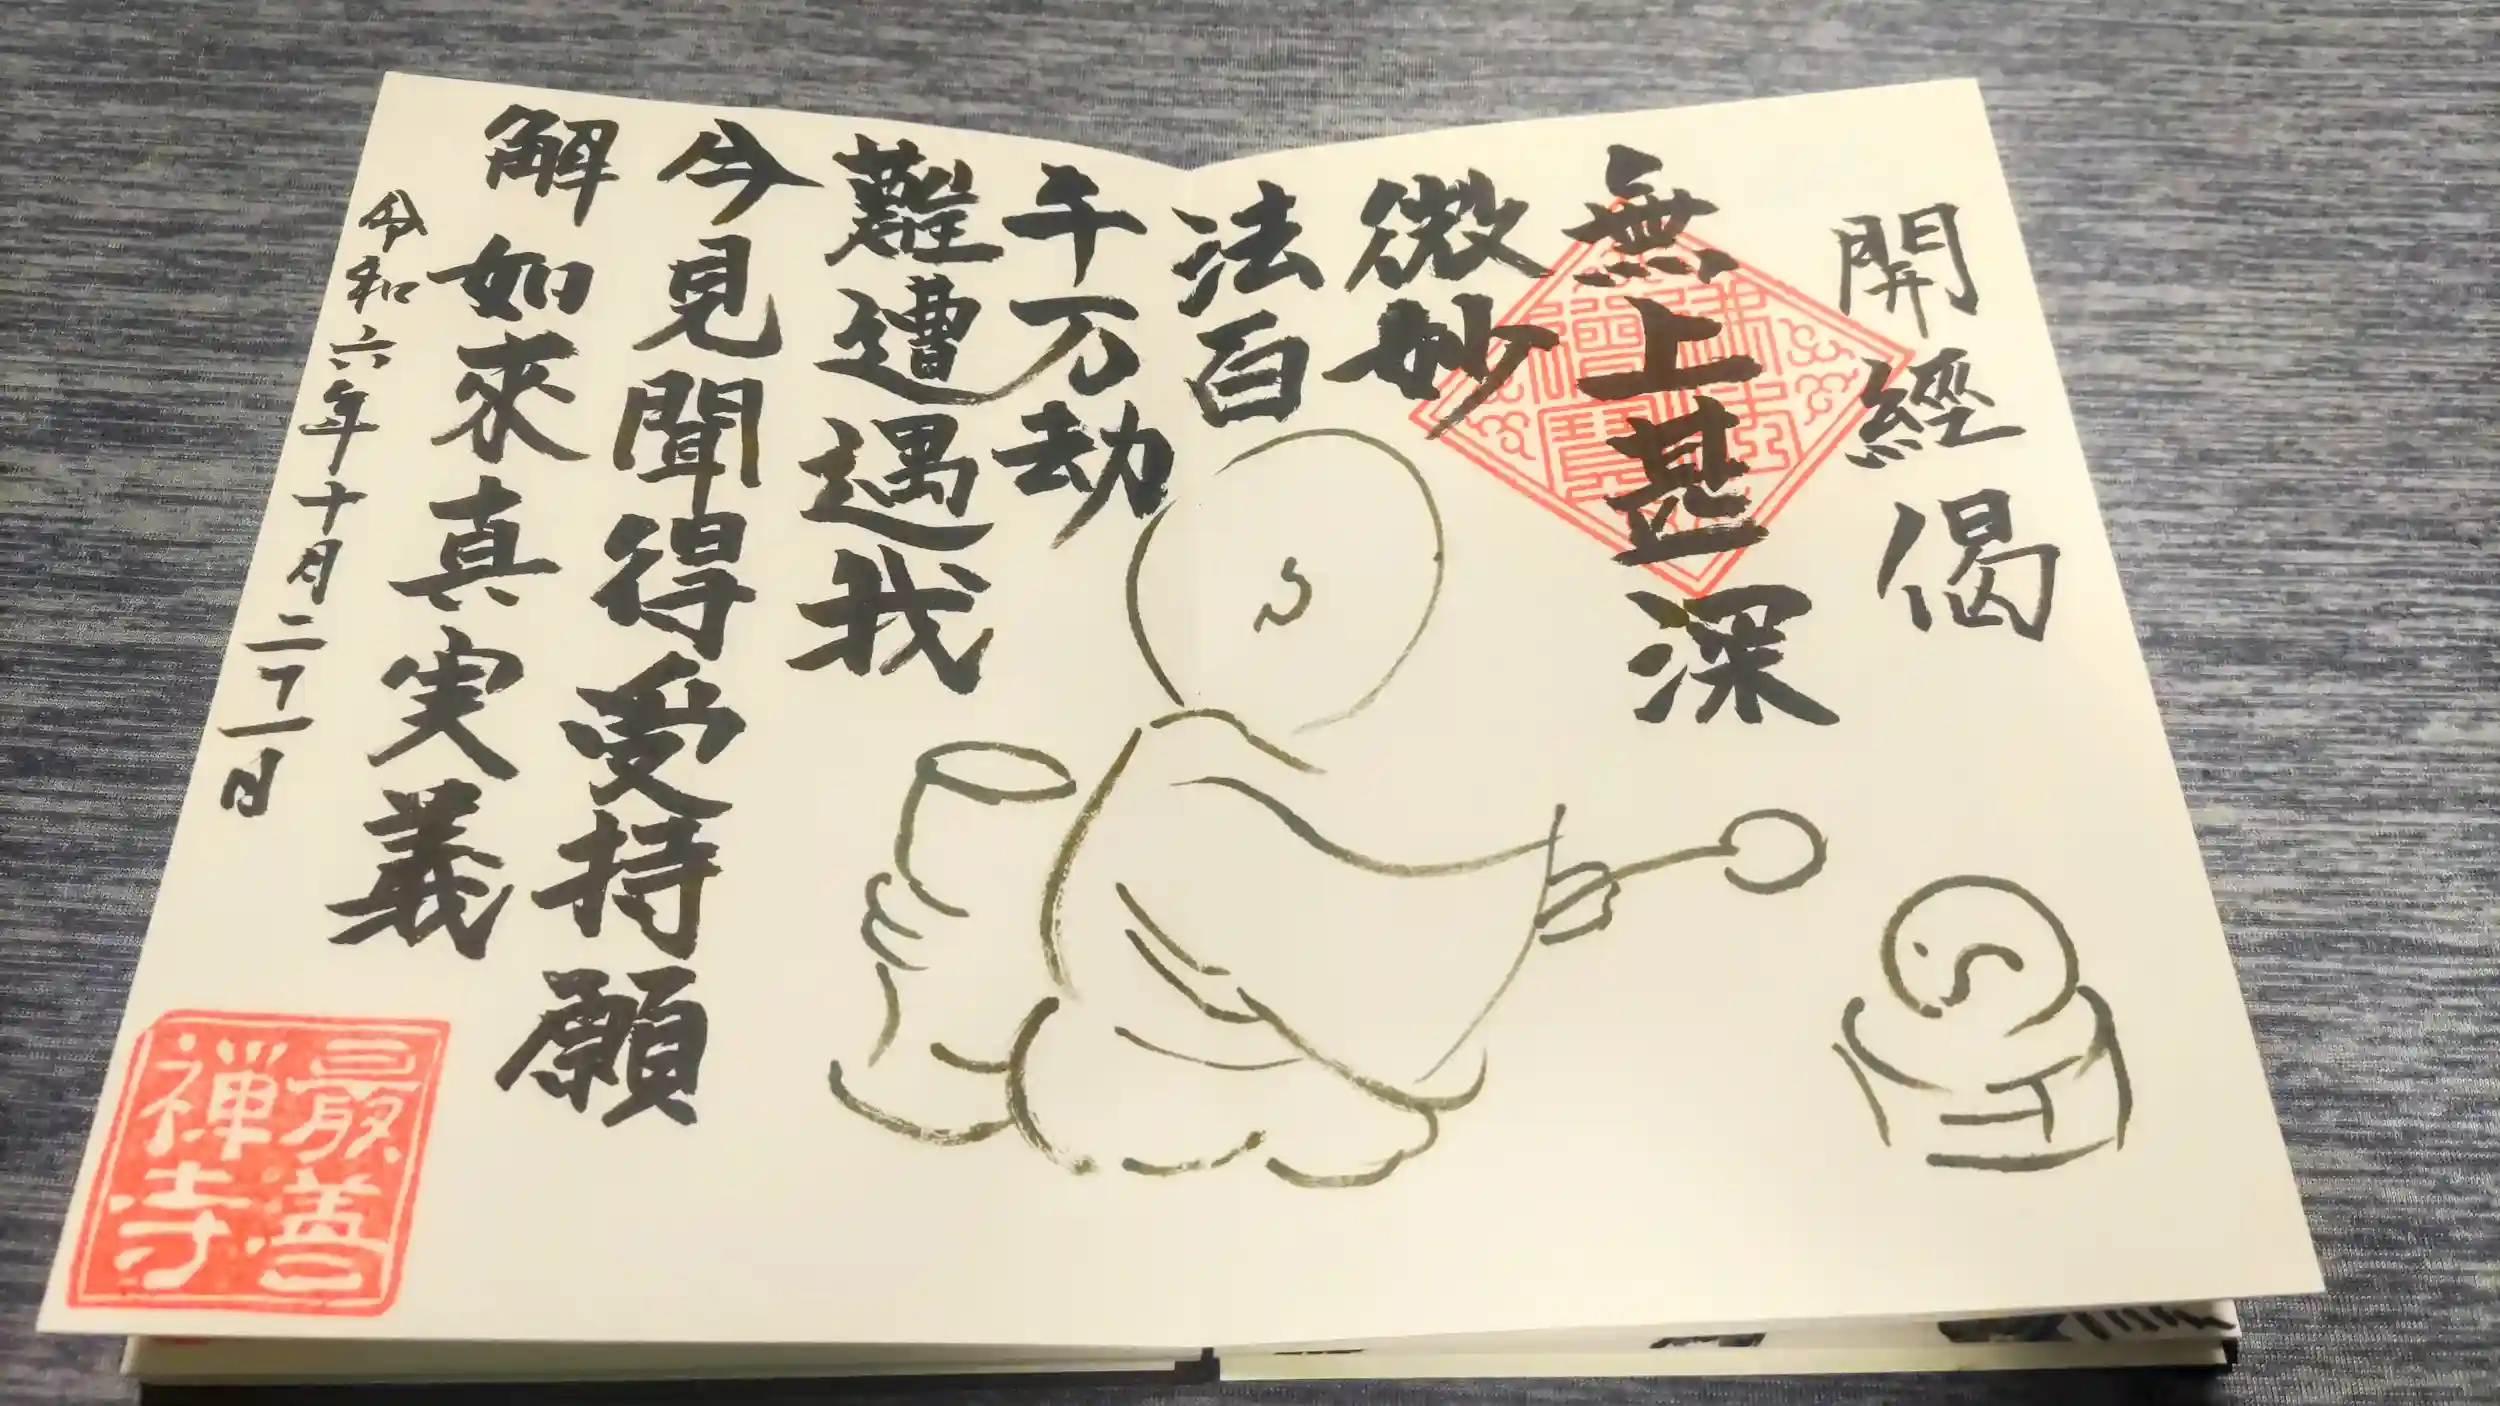 開經偈
無上甚深
微妙
法百
千万劫
難遭遇我
今見聞得受持願
解如來真実義
令和六年十月二十一日
最善
禅寺